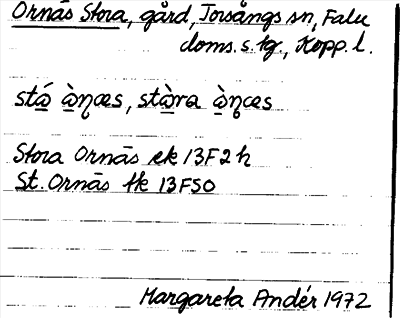 Ornäs Stora, gård, Torsångs sn, Falu
doms. s. tg., Kopp. l.
stá̱ o̱̊̀ɳæs, stà̱ra o̱̊̀ɳæs
Stora Ornäs ek 13F2h
St. Ornäs tk 13FSO
Margareta Andér 1972